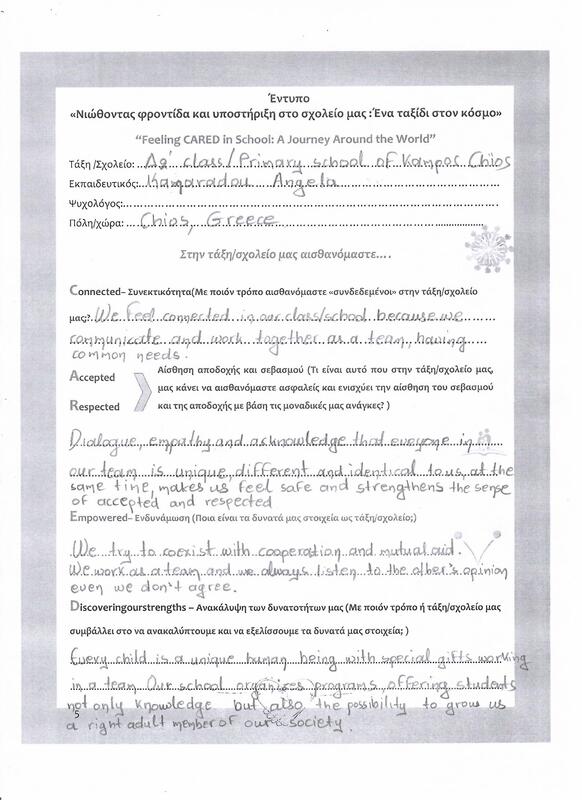 Έντυπο
«Νιώθοντας φροντίδα και υποστήριξη στο σχολείο μας :Ένα ταξίδι στον κόσμο»
"Feeling CARED in School: A Journey Around the World"
Τάξη /Σχολείο: Δβ' class/Primary school of Kampos Chios
Εκπαιδευτικός: Kamaradou Angela
Ψυχολόγος:
Πόλη/χώρα: Chios, Greece
Στην τάξη/σχολείο μας αισθανόμαστε….
Connected– Συνεκτικότητα(Με ποιόν τρόπο αισθανόμαστε «συνδεδεμένοι» στην τάξη/σχολείο
μας;? We feel connected in our class/school because we
communicate and work together as a team, having
common needs.
Accepted
Respected
Αίσθηση αποδοχής και σεβασμού (Τι είναι αυτό που στην τάξη/σχολείο μας,
μας κάνει να αισθανόμαστε ασφαλείς και ενισχύει την αίσθηση του σεβασμού
και της αποδοχής με βάση τις μοναδικές μας ανάγκες? )
Dialogue, empathy and acknowledge that everyone in
our team is unique, different and identical to us, at the
same time, makes us feel safe and strengthens the sense
of accepted and respected
Empowered– Ενδυνάμωση (Ποια είναι τα δυνατά μας στοιχεία ως τάξη/σχολείο;)
We try to coexist with cooperation and mutual aid.
We work as a team and we always listen to the other's opinion
even we don't agree.
Discoveringourstrengths – Ανακάλυψη των δυνατοτήτων μας (Με ποιόν τρόπο ή τάξη/σχολείο μας
συμβάλλει στο να ανακαλύπτουμε και να εξελίσσουμε τα δυνατά μας στοιχεία; )
Every child is a unique human being with special gifts working
in a team. Our school organises programs, offering students
not only knowledge but also the possibility to grow us
a right adult member of our society.
5